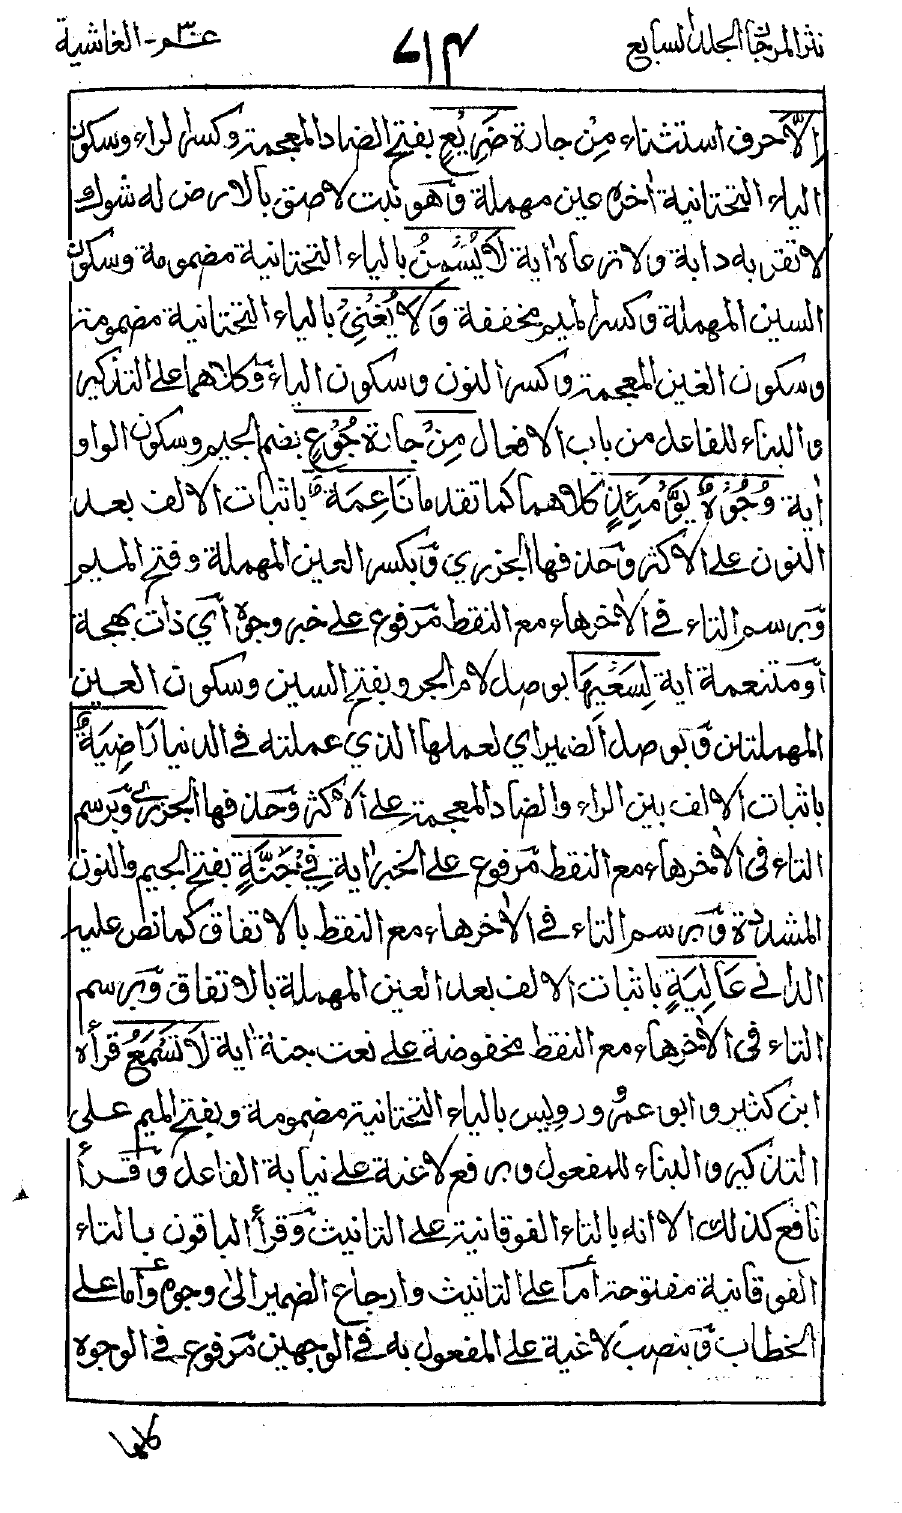 نثر المرجان الجلد السابع
٧١٣
عم ٣٠ - الغاشية
إِلَّا حرف استثناء مِنْ جارة ضَرِيْعٍ بفتح الضاد المعجمة وكسر الراء وسكون
الياء التحتانية اٰخره عين مهملة وَهو نبت لاصق بالارض له شوك
لا تقربه دابة ولا ترعاه اٰية لَا يُسْمِنُ بالياء التحتانية مضمومة وسكون
السين المهملة وكسر الميم مخففة وَلَا يُغْنِيْ بالياء التحتانية مضمومة
وسكون الغين المعجمة وكسر النون وسكون الياء وَكلاهما على التذكير
والبناء للفاعل من باب الافعال مِنْ جارة جُوْعٍ بضم الجيم وسكون الواو
اٰية وُجُوْهٌ يَّوْمَئِذٍ كلاهما كما تقدما نَاعِمَةٌ باثبات الالف بعد
النون على الاكثر وَحذفها الجزري وَبكسر العين المهملة وفتح الميم
وَبرسم التاء في الاٰخر هاء مع النقط مَرفوع على خبر وجوه أي ذات بهجة
أو متنعمة اٰية لِسَعْيِهَا بوصل لام الجر وبفتح السين وسكون العين
المهملتين وَبوصل الضمير اي لعملها الذي عملته في الدنيا رَاضِيَةٌ
باثبات الالف بين الراء والضاد المعجمة على الاكثر وَحذفها الجزري وَبرسم
التاء في الاٰخر هاء مع النقط مَرفوع على الخبر اٰية فِيْ جَنَّةٍ بفتح الجيم والنون
المشددة وَبرسم التاء في الاٰخر هاء مع النقط بالاتفاق كما نص عليه
الداني عَالِيَةٍ باثبات الالف بعد العين المهملة بالاتفاق وَبرسم
التاء في الاٰخر هاء مع النقط مخفوضة على نعت جنة اٰية لَا تَسْمَعُ قرأه
ابن كثير وابو عمرو ورويس بالياء التحتانية مضمومة وبفتح الميم على
التذكير والبناء للمفعول وبرفع لاغية على نيابة الفاعل وَقرأ
نافع كذلك الا انه بالتاء الفوقانية على التانيث وَقرأ الباقون بالتاء
الفوقانية مفتوحة أما على التانيث وارجاع الضمير الى وجوه وَأما على
الخطاب وَبنصب لاغية على المفعول به في الوجهين مَرفوع في الوجوه
كلها